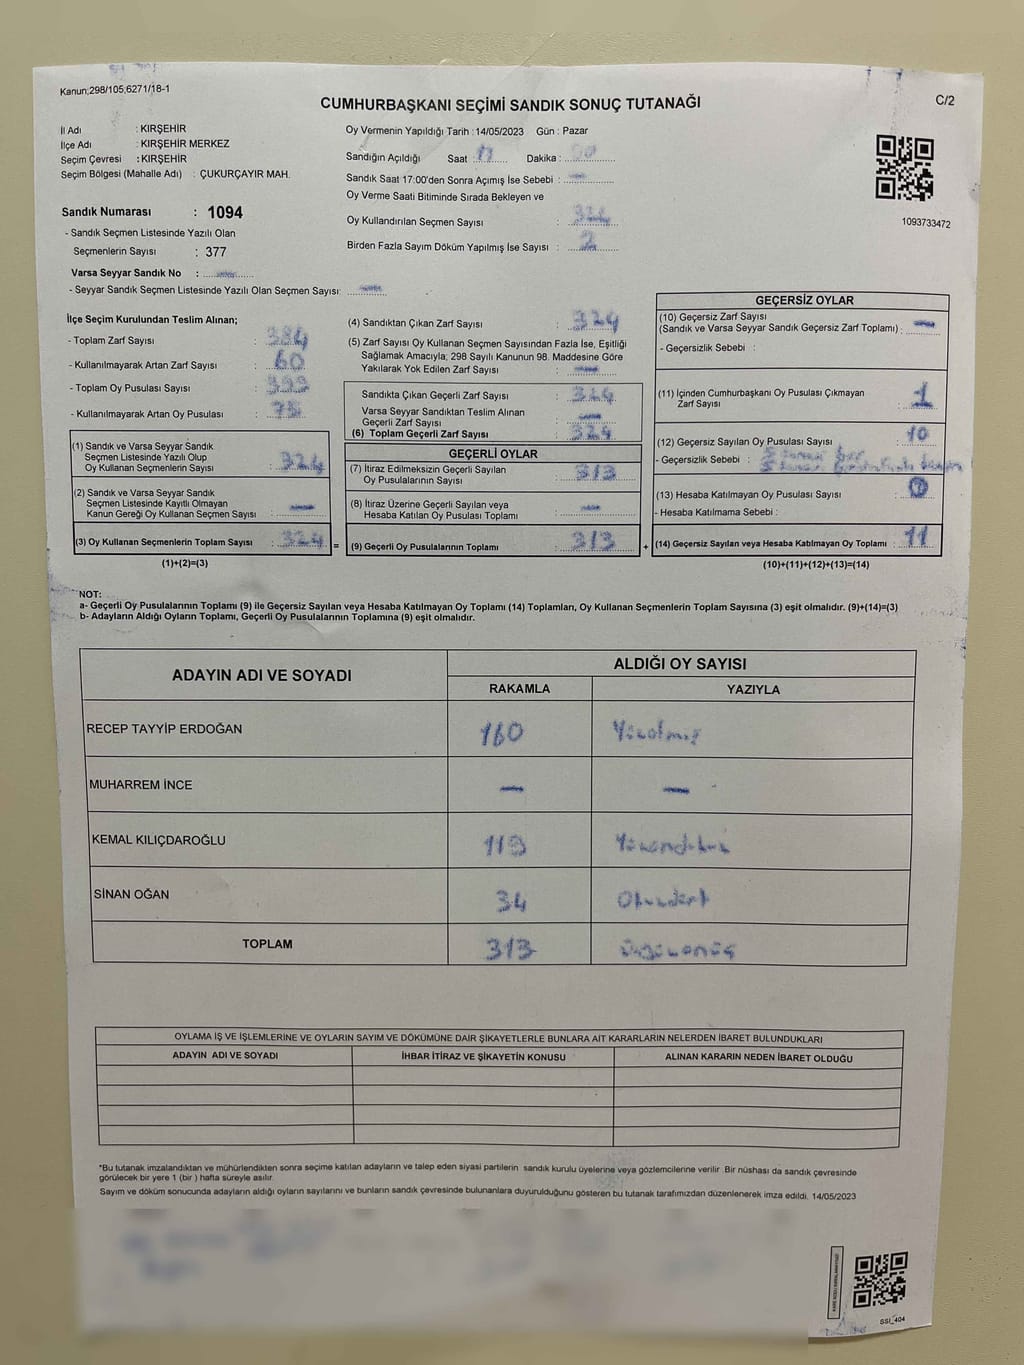 Kanun;298/105,6271/18-1
CUMHURBAŞKANI SEÇİMİ SANDIK SONUÇ TUTANAĞI
C/2
İl Adı : KIRŞEHİR
İlçe Adı : KIRŞEHİR MERKEZ
Seçim Çevresi : KIRŞEHİR
Seçim Bölgesi (Mahalle Adı) : ÇUKURÇAYIR MAH.
Sandık Numarası : 1094
- Sandık Seçmen Listesinde Yazılı Olan
Seçmenlerin Sayısı : 377
Varsa Seyyar Sandık No : —
- Seyyar Sandık Seçmen Listesinde Yazılı Olan Seçmen Sayısı: —
Oy Vermenin Yapıldığı Tarih : 14/05/2023 Gün : Pazar
Sandığın Açıldığı Saat : 17 Dakika : 00
Sandık Saat 17:00'den Sonra Açımış İse Sebebi : —
Oy Verme Saati Bitiminde Sırada Bekleyen ve
Oy Kullandırılan Seçmen Sayısı : 324
Birden Fazla Sayım Döküm Yapılmış İse Sayısı : 2
1093733472
İlçe Seçim Kurulundan Teslim Alınan;
- Toplam Zarf Sayısı : 384
- Kullanılmayarak Artan Zarf Sayısı : 60
- Toplam Oy Pusulası Sayısı : 399
- Kullanılmayarak Artan Oy Pusulası : 75
(1) Sandık ve Varsa Seyyar Sandık
Seçmen Listesinde Yazılı Olup
Oy Kullanan Seçmenlerin Sayısı : 324
(2) Sandık ve Varsa Seyyar Sandık
Seçmen Listesinde Kayıtlı Olmayan
Kanun Gereği Oy Kullanan Seçmen Sayısı : —
(3) Oy Kullanan Seçmenlerin Toplam Sayısı : 324 =
(1)+(2)=(3)
(4) Sandıktan Çıkan Zarf Sayısı : 324
(5) Zarf Sayısı Oy Kullanan Seçmen Sayısından Fazla İse, Eşitliği
Sağlamak Amacıyla; 298 Sayılı Kanunun 98. Maddesine Göre
Yakılarak Yok Edilen Zarf Sayısı : —
Sandıkta Çıkan Geçerli Zarf Sayısı : 324
Varsa Seyyar Sandıktan Teslim Alınan
Geçerli Zarf Sayısı : —
(6) Toplam Geçerli Zarf Sayısı : 324
GEÇERLİ OYLAR
(7) İtiraz Edilmeksizin Geçerli Sayılan
Oy Pusulalarının Sayısı : 313
(8) İtiraz Üzerine Geçerli Sayılan veya
Hesaba Katılan Oy Pusulası Toplamı : —
(9) Geçerli Oy Pusulalarının Toplamı : 313 +
GEÇERSİZ OYLAR
(10) Geçersiz Zarf Sayısı
(Sandık ve Varsa Seyyar Sandık Geçersiz Zarf Toplamı) : —
- Geçersizlik Sebebi :
(11) İçinden Cumhurbaşkanı Oy Pusulası Çıkmayan
Zarf Sayısı : 1
(12) Geçersiz Sayılan Oy Pusulası Sayısı : 10
- Geçersizlik Sebebi :
(13) Hesaba Katılmayan Oy Pusulası Sayısı :
- Hesaba Katılmama Sebebi :
(14) Geçersiz Sayılan veya Hesaba Katılmayan Oy Toplamı : 11
(10)+(11)+(12)+(13)=(14)
NOT:
a- Geçerli Oy Pusulalarının Toplamı (9) ile Geçersiz Sayılan veya Hesaba Katılmayan Oy Toplamı (14) Toplamları, Oy Kullanan Seçmenlerin Toplam Sayısına (3) eşit olmalıdır. (9)+(14)=(3)
b- Adayların Aldığı Oyların Toplamı, Geçerli Oy Pusulalarının Toplamına (9) eşit olmalıdır.
ADAYIN ADI VE SOYADI
ALDIĞI OY SAYISI
RAKAMLA YAZIYLA
RECEP TAYYİP ERDOĞAN 160 Yüzatmış
MUHARREM İNCE — —
KEMAL KILIÇDAROĞLU 119 Yüzondokuz
SİNAN OĞAN 34 Otuzdört
TOPLAM 313 Üçyüzonüç
OYLAMA İŞ VE İŞLEMLERİNE VE OYLARIN SAYIM VE DÖKÜMÜNE DAİR ŞİKAYETLERLE BUNLARA AİT KARARLARIN NELERDEN İBARET BULUNDUKLARI
ADAYIN ADI VE SOYADI İHBAR İTİRAZ VE ŞİKAYETİN KONUSU ALINAN KARARIN NEDEN İBARET OLDUĞU
*Bu tutanak imzalandıktan ve mühürlendikten sonra seçime katılan adayların ve talep eden siyasi partilerin sandık kurulu üyelerine veya gözlemcilerine verilir. Bir nüshası da sandık çevresinde
görülecek bir yere 1 (bir ) hafta süreyle asılır.
Sayım ve döküm sonucunda adayların aldığı oyların sayılarını ve bunların sandık çevresinde bulunanlara duyurulduğunu gösteren bu tutanak tarafımızdan düzenlenerek imza edildi. 14/05/2023
SSİ_404